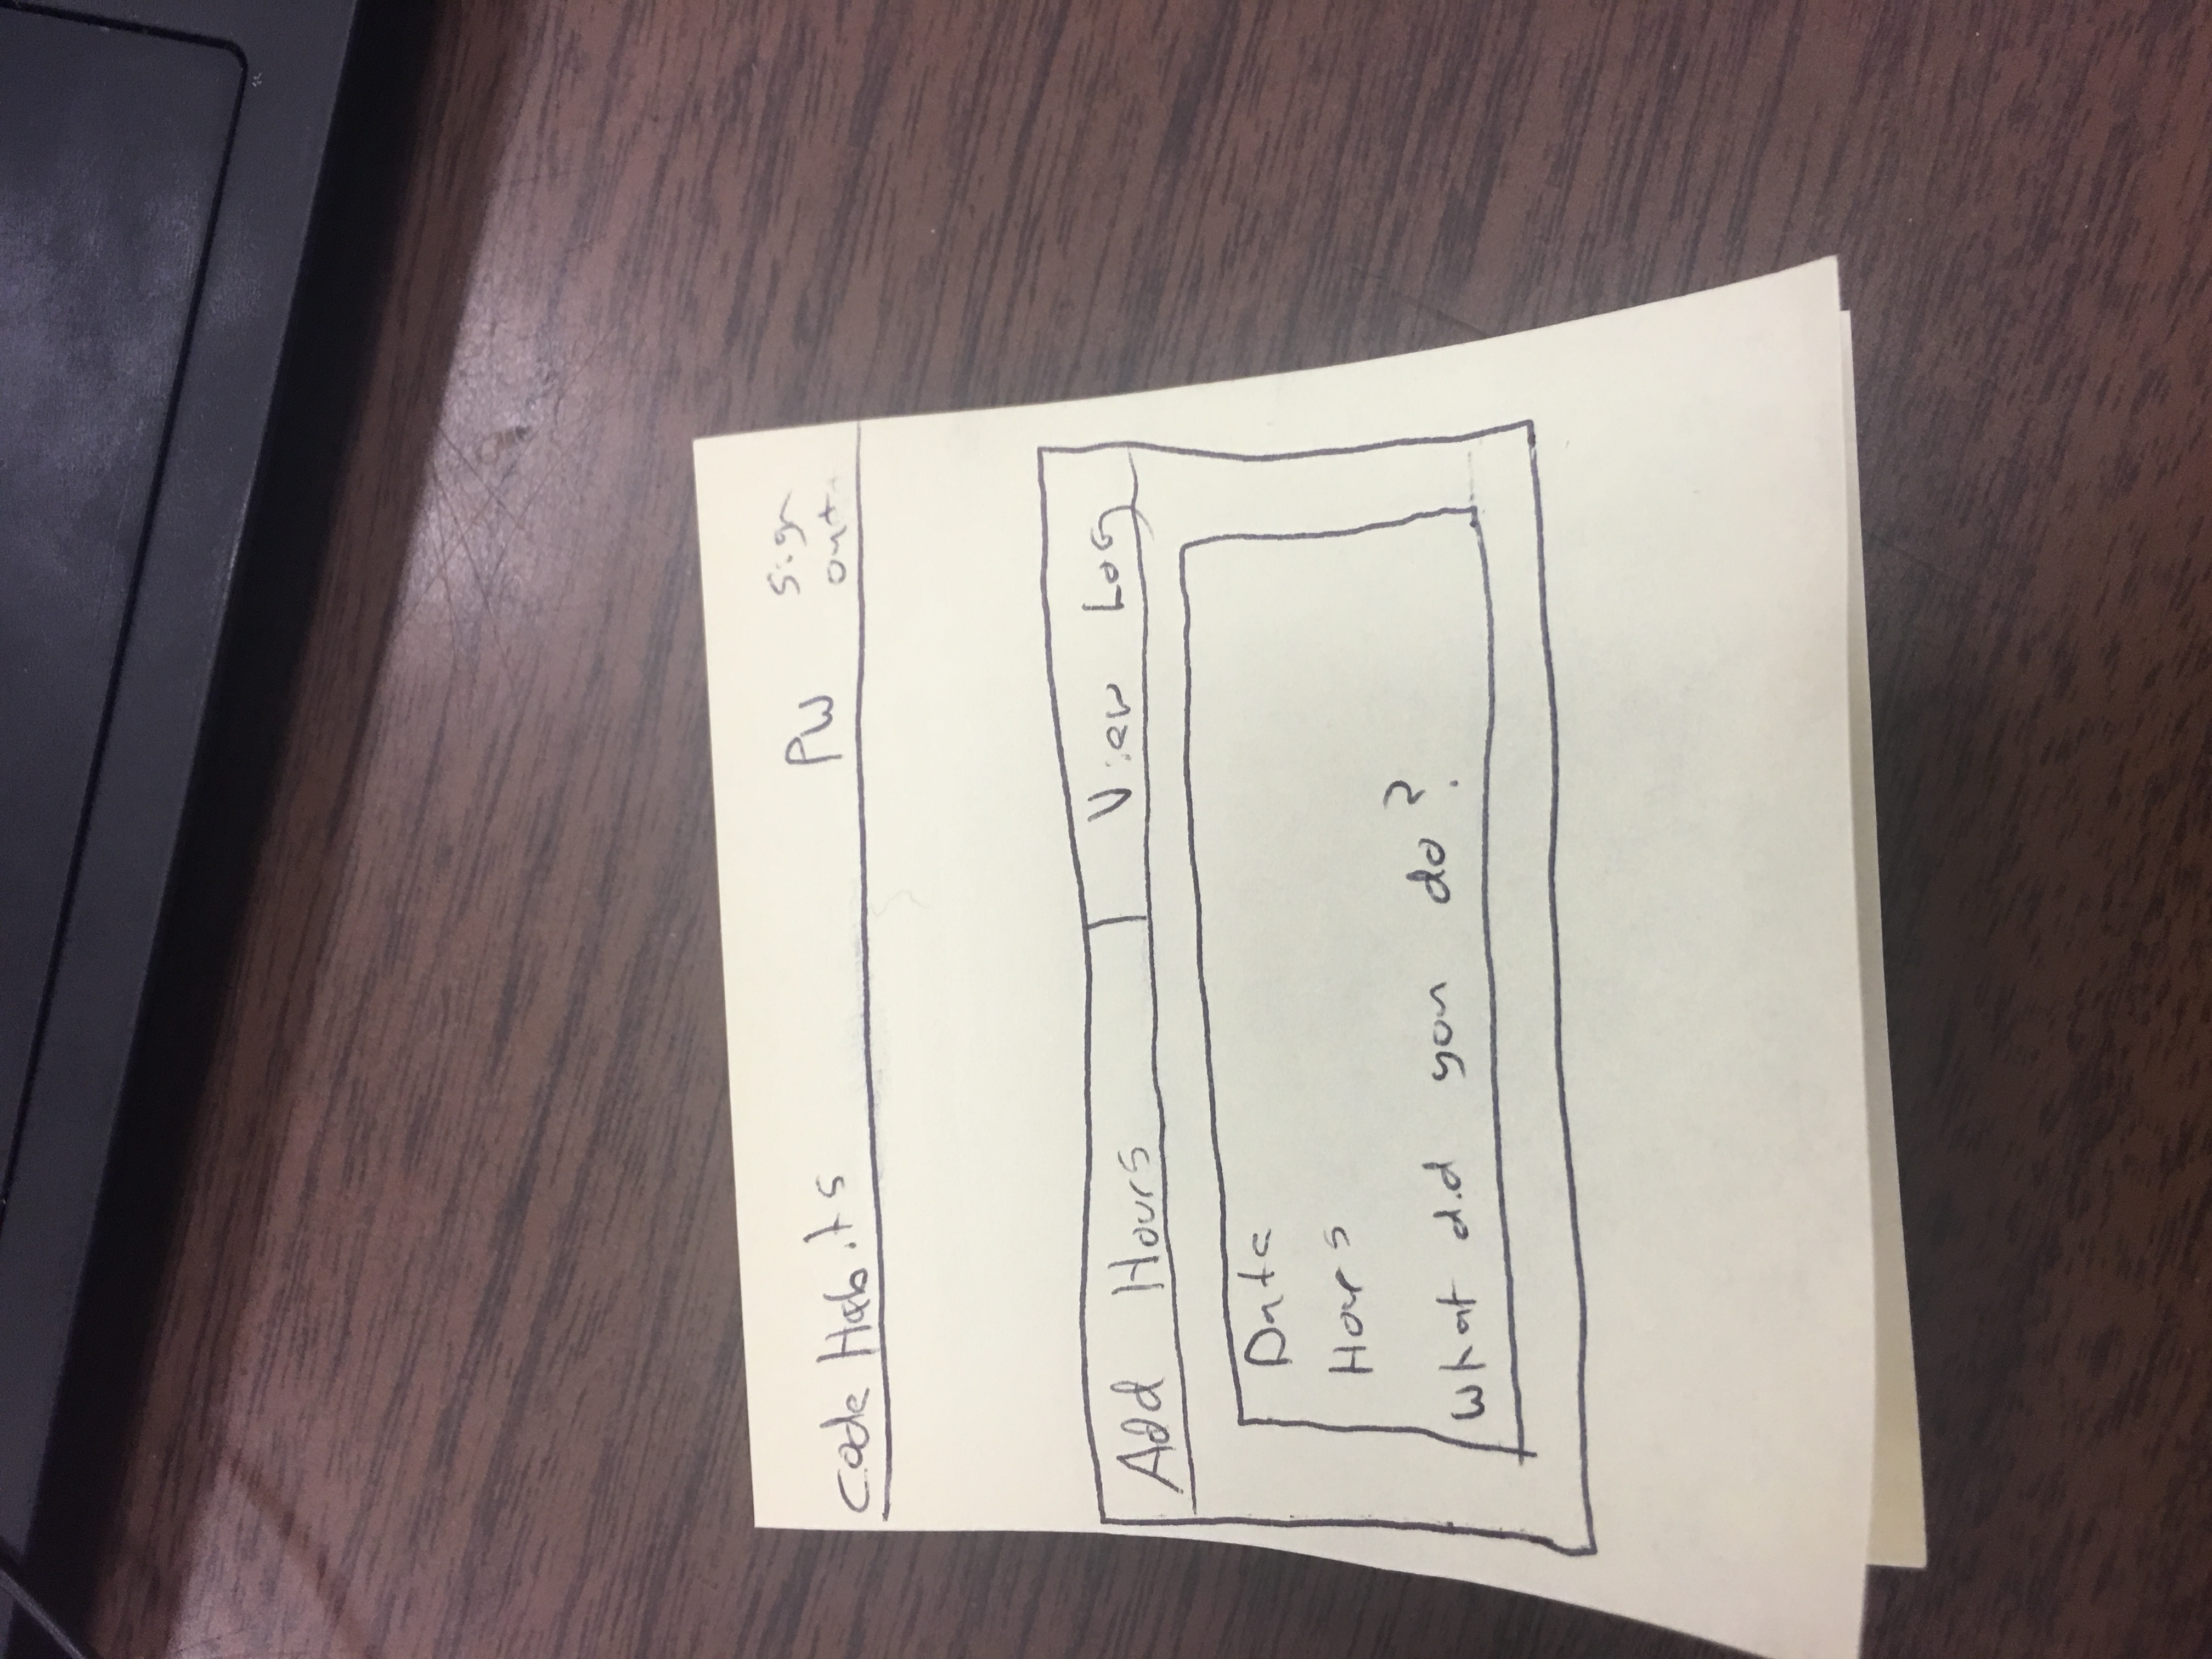 Code Habits PW Sign out
Add Hours View Log
Date
Hours
What did you do?